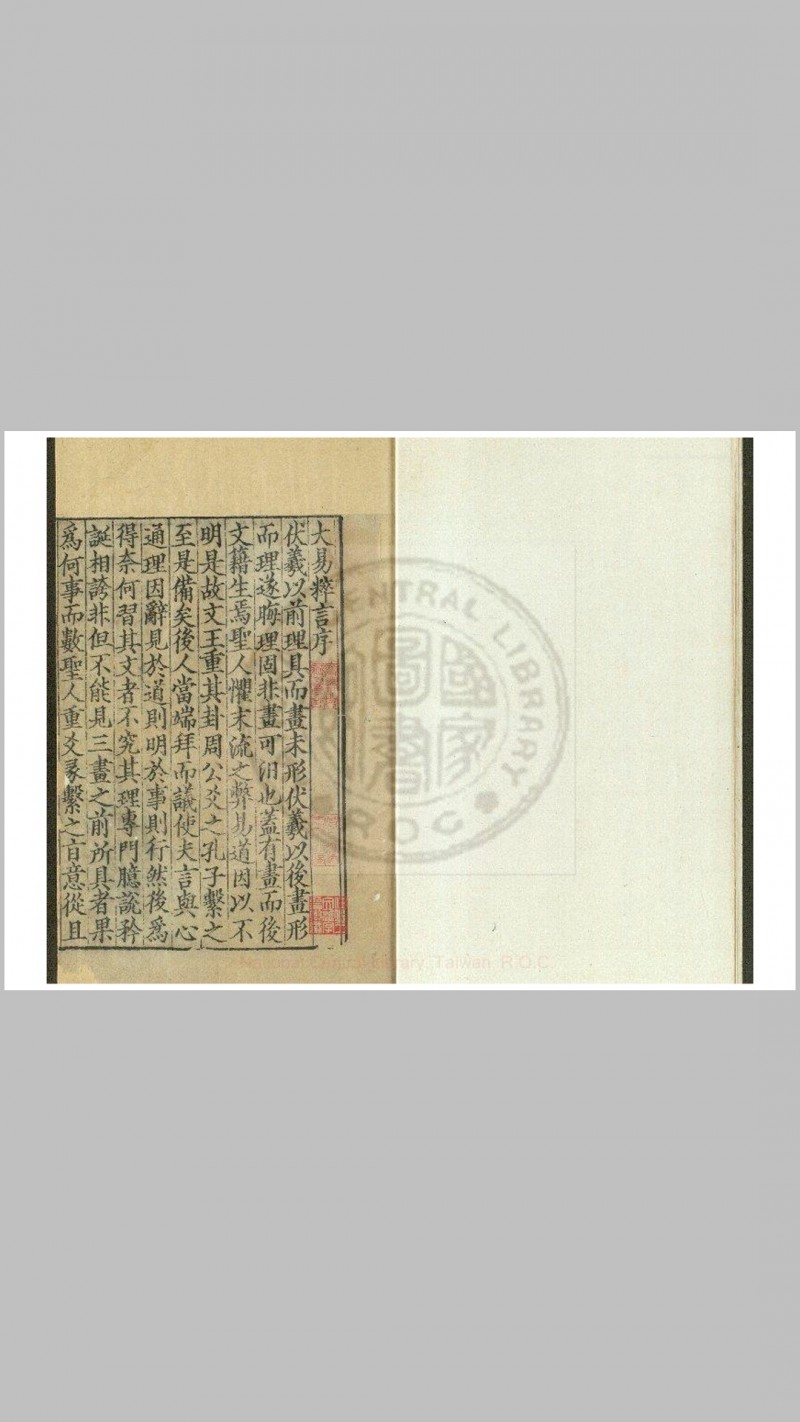 大易粹言序
伏羲以前理具而畫未形伏羲以後畫形
而理遂晦理固非畫可汨也蓋有畫而後
文籍生焉聖人懼末流之弊易道因以不
明是故文王重其卦周公爻之孔子繫之
至是備矣後人當端拜而議使夫言與心
通理因辭見於道則明於事則行然後爲
得奈何習其文者不究其理專門臆說矜
誕相誇非但不能見三畫之前所具者果
爲何事而數聖人重爻彖繫之旨意從且
CENTRAL LIBRARY
R.O.C
國家圖書
National Central Library, Taiwan R.O.C